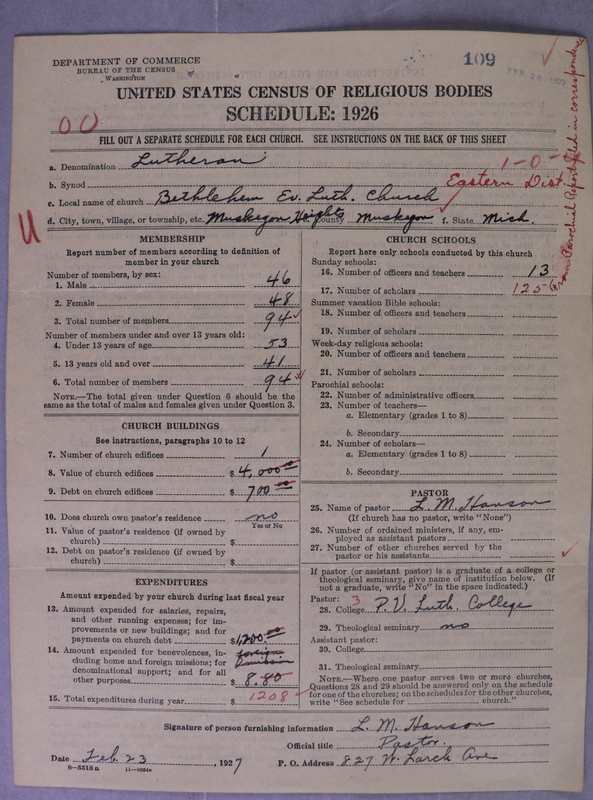 DEPARTMENT OF COMMERCE
BUREAU OF THE CENSUS
WASHINGTON
109
UNITED STATES CENSUS OF RELIGIOUS BODIES
SCHEDULE: 1926
00
FILL OUT A SEPARATE SCHEDULE FOR EACH CHURCH. SEE INSTRUCTIONS ON THE BACK OF THIS SHEET
a. Denomination Lutheran
1-0-
b. Synod Eastern Dist.
c. Local name of church Bethlehem Ev. Luth. Church
d. City, town, village, or township, etc. Muskegon Heights County Muskegon f. State Mich.
from Parochial Report filed in correspondence
MEMBERSHIP
Report number of members according to definition of
member in your church
Number of members, by sex:
1. Male 46
2. Female 48
3. Total number of members 94
Number of members under and over 13 years old:
4. Under 13 years of age 53
5. 13 years old and over 41
6. Total number of members 94
NOTE.—The total given under Question 6 should be the
same as the total of males and females given under Question 3.
CHURCH BUILDINGS
See instructions, paragraphs 10 to 12
7. Number of church edifices 1
8. Value of church edifices $ 4,000.00
9. Debt on church edifices $ 700.00
10. Does church own pastor's residence no
Yes or No
11. Value of pastor's residence (if owned by
church) $
12. Debt on pastor's residence (if owned by
church) $
EXPENDITURES
Amount expended by your church during last fiscal year
13. Amount expended for salaries, repairs,
and other running expenses; for im-
provements or new buildings; and for
payments on church debt $1,200.00
14. Amount expended for benevolences, in-
cluding home and foreign missions; for
denominational support; and for all
other purposes $ 8.80
15. Total expenditures during year $ 1208
CHURCH SCHOOLS
Report here only schools conducted by this church
Sunday schools:
16. Number of officers and teachers 13
17. Number of scholars 125
Summer vacation Bible schools:
18. Number of officers and teachers
19. Number of scholars
Week-day religious schools:
20. Number of officers and teachers
21. Number of scholars
Parochial schools:
22. Number of administrative officers
23. Number of teachers—
a. Elementary (grades 1 to 8)
b. Secondary
24. Number of scholars—
a. Elementary (grades 1 to 8)
b. Secondary
PASTOR
25. Name of pastor L. M. Hanson
(If church has no pastor, write "None")
26. Number of ordained ministers, if any, em-
ployed as assistant pastors
27. Number of other churches served by the
pastor or his assistants
If pastor (or assistant pastor) is a graduate of a college or
theological seminary, give name of institution below. (If
not a graduate, write "No" in the space indicated.)
Pastor: 3
28. College P. V. Luth. College
29. Theological seminary no
Assistant pastor:
30. College
31. Theological seminary
NOTE.—Where one pastor serves two or more churches,
Questions 28 and 29 should be answered only on the schedule
for one of the churches; on the schedules for the other churches,
write "See schedule for church."
Signature of person furnishing information L. M. Hanson
Official title Pastor.
Date Feb. 23, 1927 P. O. Address 827 W. Larch Ave